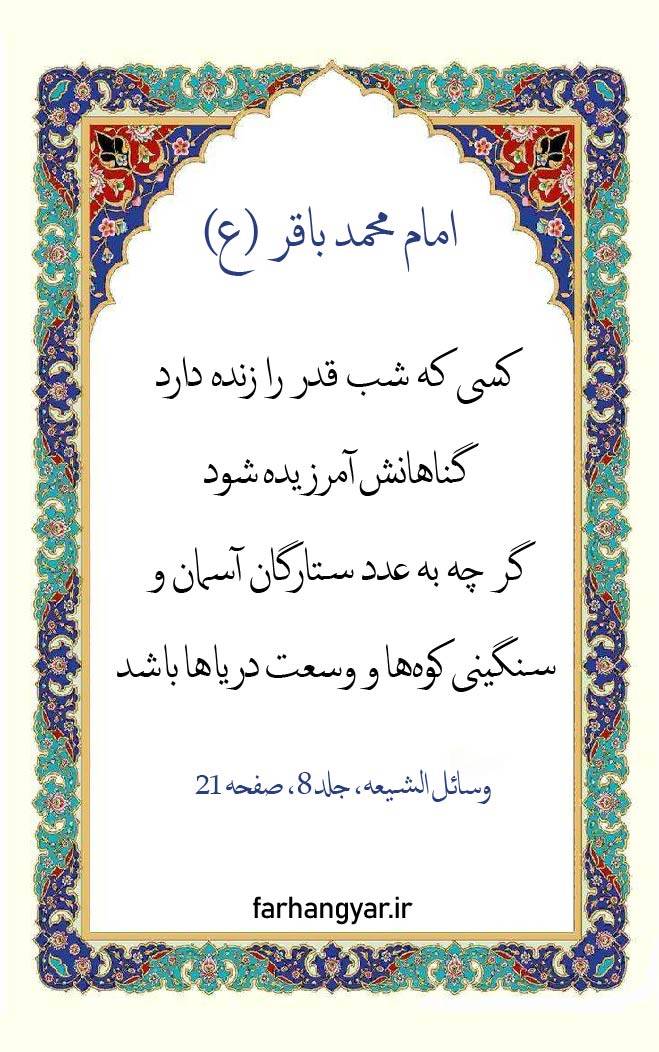 امام محمد باقر (ع)
کسی که شب قدر را زنده دارد
گناهانش آمرزیده شود
گر چه به عدد ستارگان آسمان و
سنگینی کوه‌ها و وسعت دریاها باشد
وسائل الشیعه، جلد 8، صفحه 21
farhangyar.ir